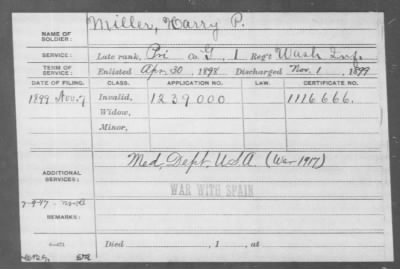 NAME OF SOLDIER: Miller, Harry P.
SERVICE: Late rank, Pri Co. G, 1 Reg't Wash Inf.
TERM OF SERVICE: Enlisted Apr. 30, 1898 Discharged Nov. 1, 1899
DATE OF FILING. CLASS. APPLICATION NO. LAW. CERTIFICATE NO.
1899 Nov. 7 Invalid, 1239000 1116666.
Widow,
Minor,
ADDITIONAL SERVICES: Med. Dept. U.S.A. (War 1917)
WAR WITH SPAIN
REMARKS:
Died , 1 , at